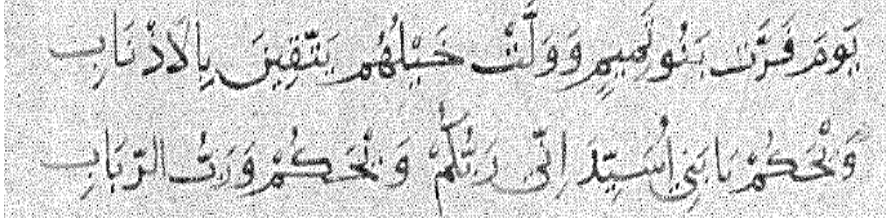 يَومَ فَرَّت بَنُو تَمِيمٍ وَوَلَّتْ خَيْلُهُم يَتَّقِينَ بِالاَذْنَابِ
وَيْحَكُمْ يَا بَنِي اُسَيِّد اِنّى رَبُّكُمْ وَيْحَكُمْ وَرَبُّ الرّبَابِ